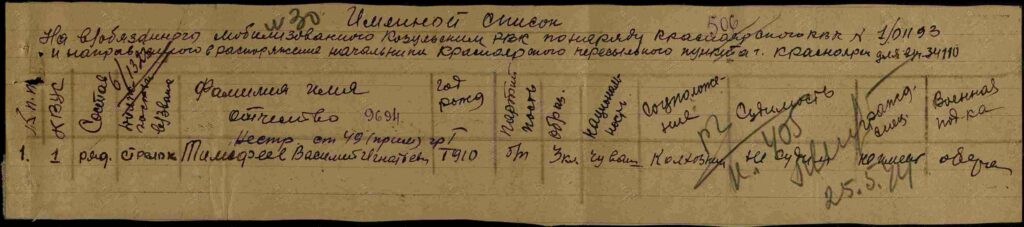 № 30 Именной список 506
На в/обязанного мобилизованного Козульским РВК по наряду Красноярского КВК № 1/01193
и направленного в распоряжение начальника Красноярского пересыльного пункта г. Красноярск для в/ч 34110
№ п.п.
№ ВУС
Состав
Фамилия имя
отчество 9694
год
рожд
Партий
ность
Образ.
Националь
ность
Соцположе
ние
Судимость
гражд.
спец.
Военная
под-ка
1. 1 ряд. стрелок Тимофеев Василий Игнатьев 1910 б/п 3кл чуваш Колхозник не судим
р2
403
25.5.